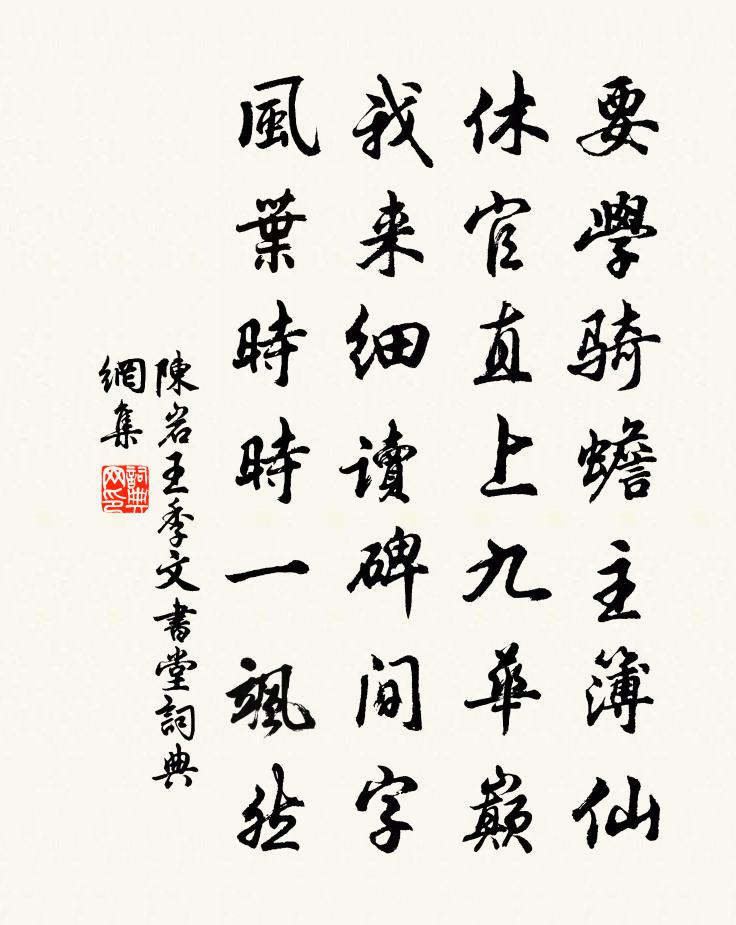 要學骑蟾主簿仙
休官直上九華巅
我来细讀碑间字
風葉時時一颯然
陳岩王季文書堂詞典
網集
詞典网印